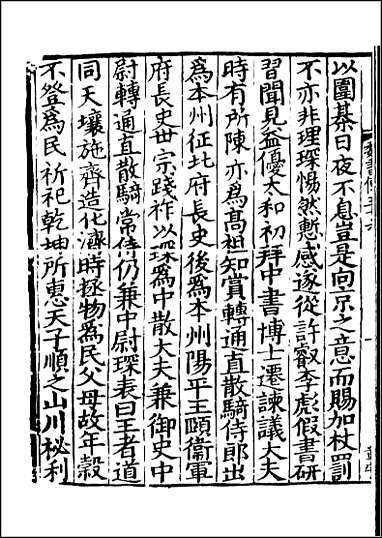 以圍棊日夜不息豈是向亰之意而賜加杖罰
不亦非理琛惕然慙感遂從許叡李彪假書研
習聞見益優太和初拜中書博士遷諫議大夫
時有所陳亦爲高祖知賞轉通直散騎侍郎出
爲本州征北府長史後爲本州陽平王頥衞軍
府長史世宗踐祚以琛爲中散大夫兼御史中
尉轉通直散騎常侍仍兼中尉琛表曰王者道
同天壤施齊造化濟時拯物爲民父母故年榖
不登爲民祈祀乾坤所惠天子順之山川秘利